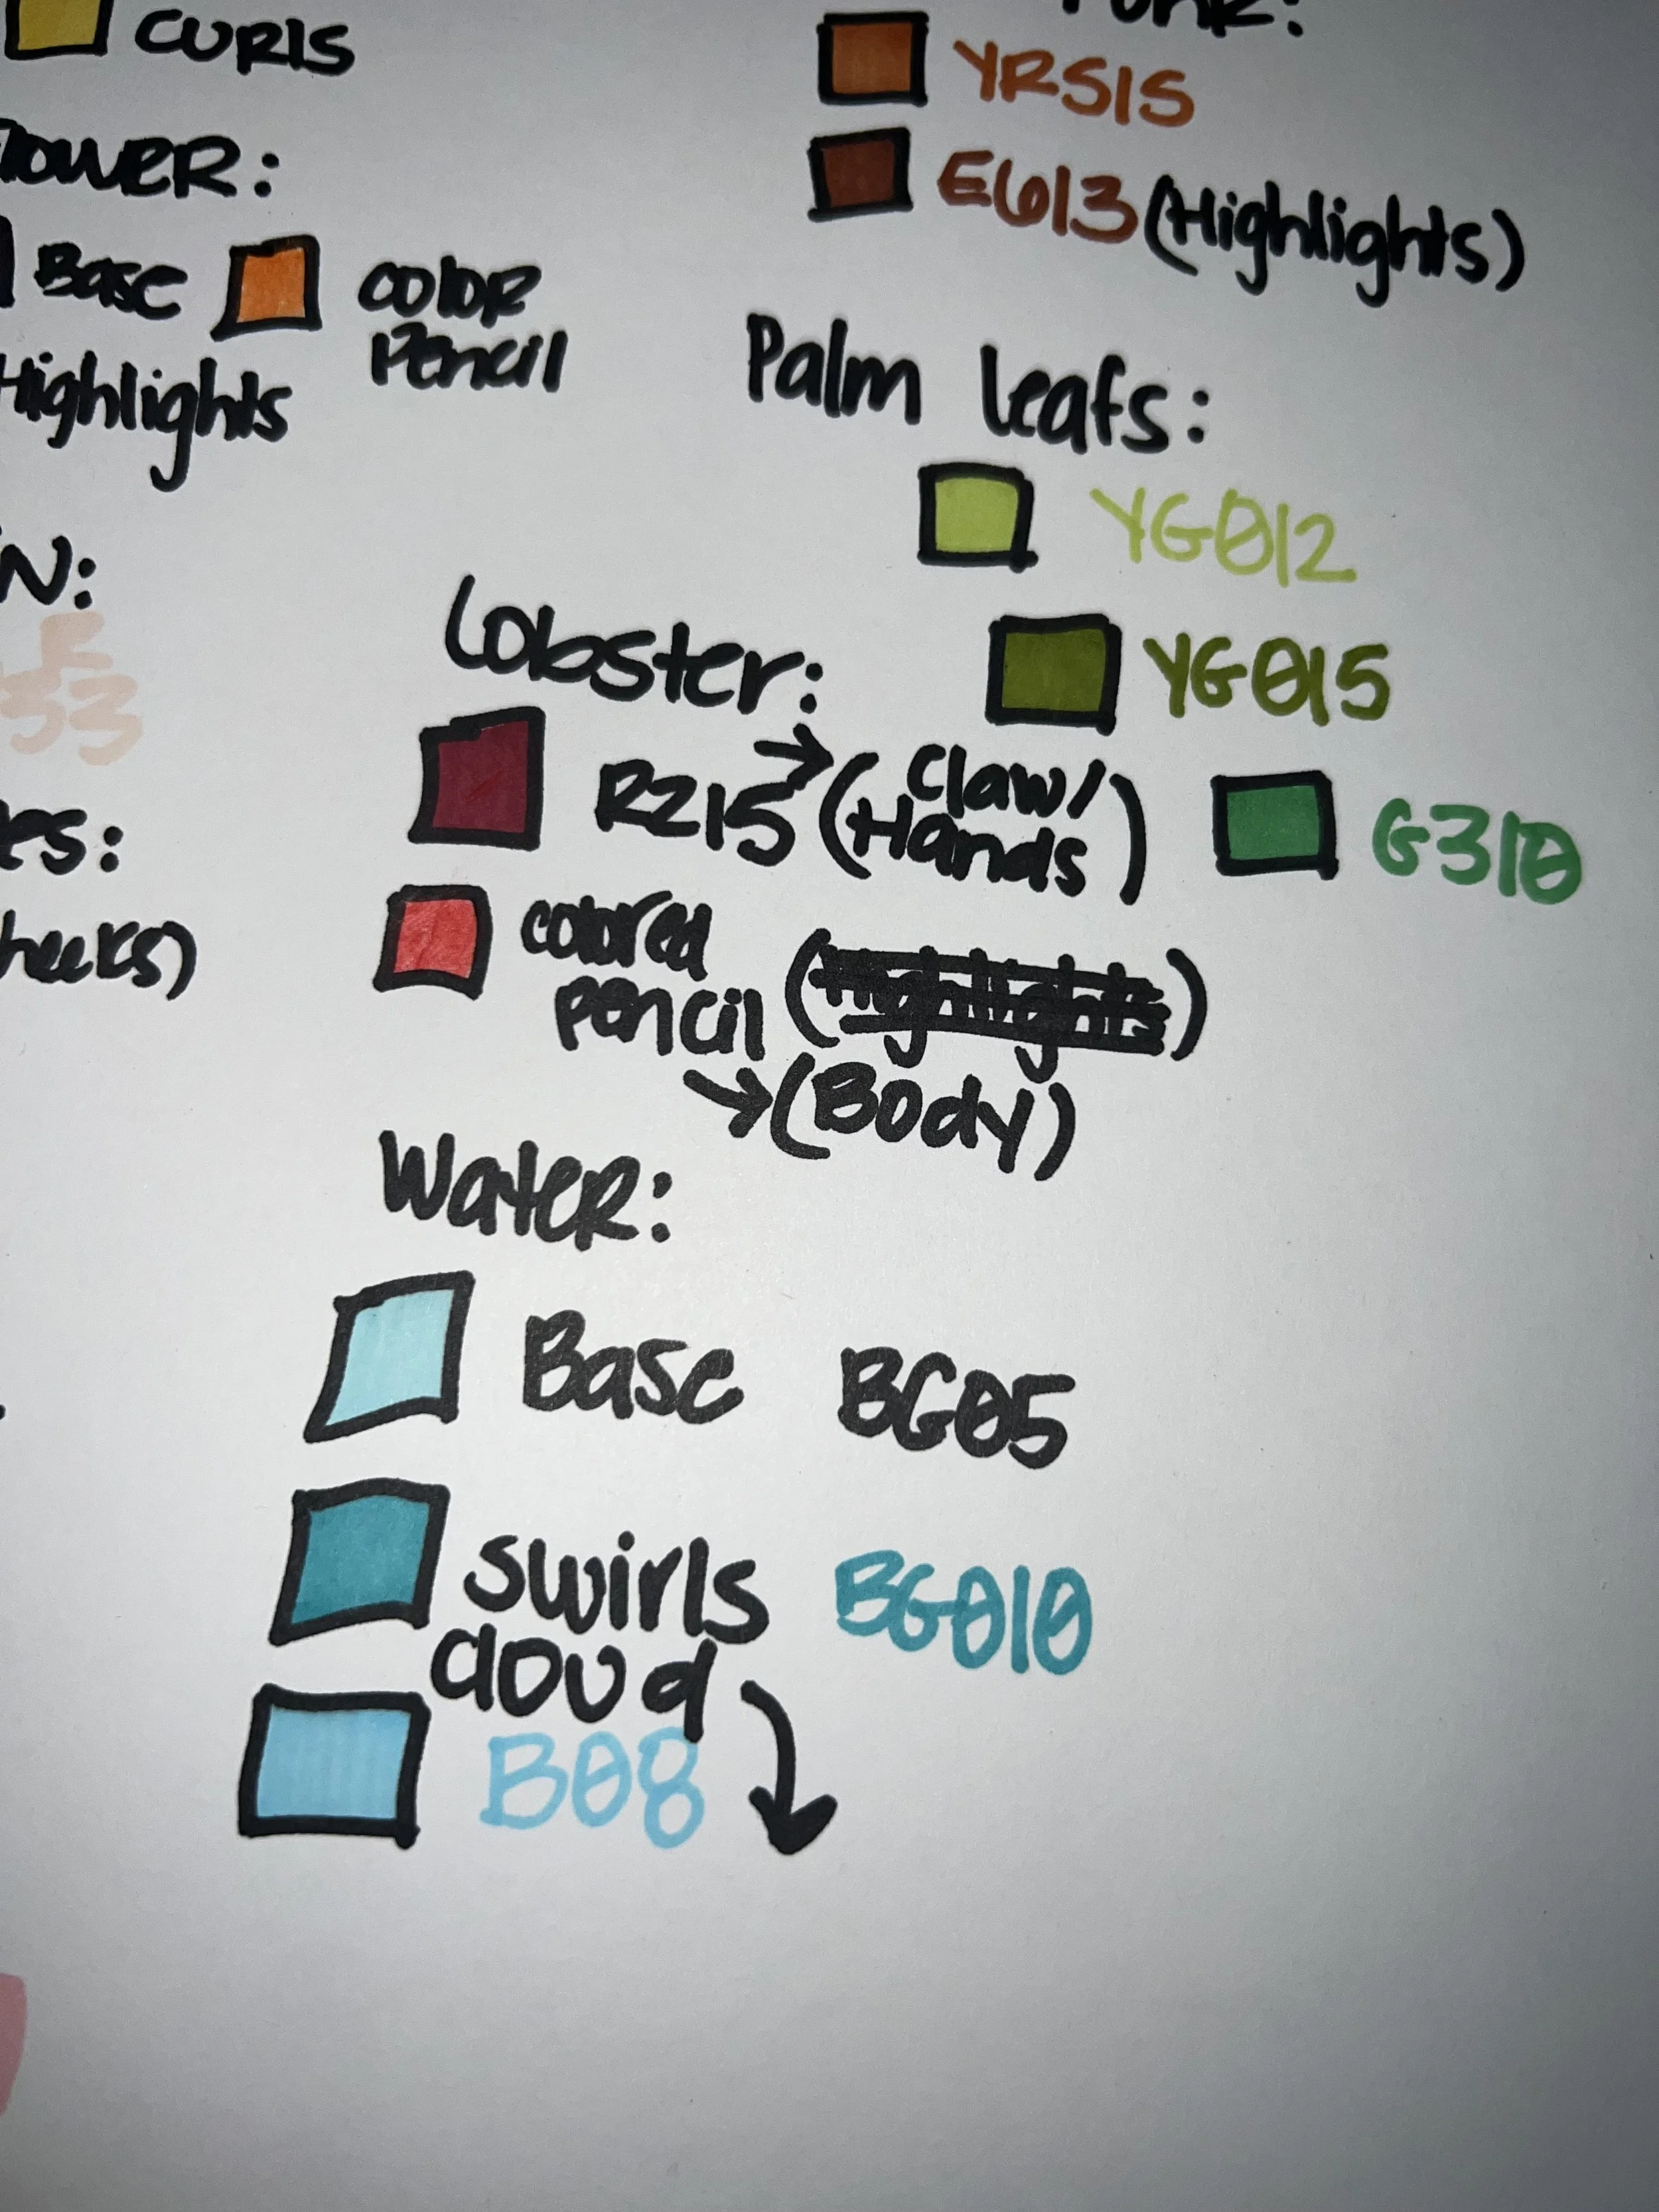 CURlS
YR515
E613 (Highlights)
Base
color
Pencil
Highlights
Palm leafs:
YG012
Lobster:
YG015
R215 → (Claw/
Hands)
G310
colored
pencil (Highlights)
→ (Body)
Water:
Base BG05
swirls BG010
cloud
B08